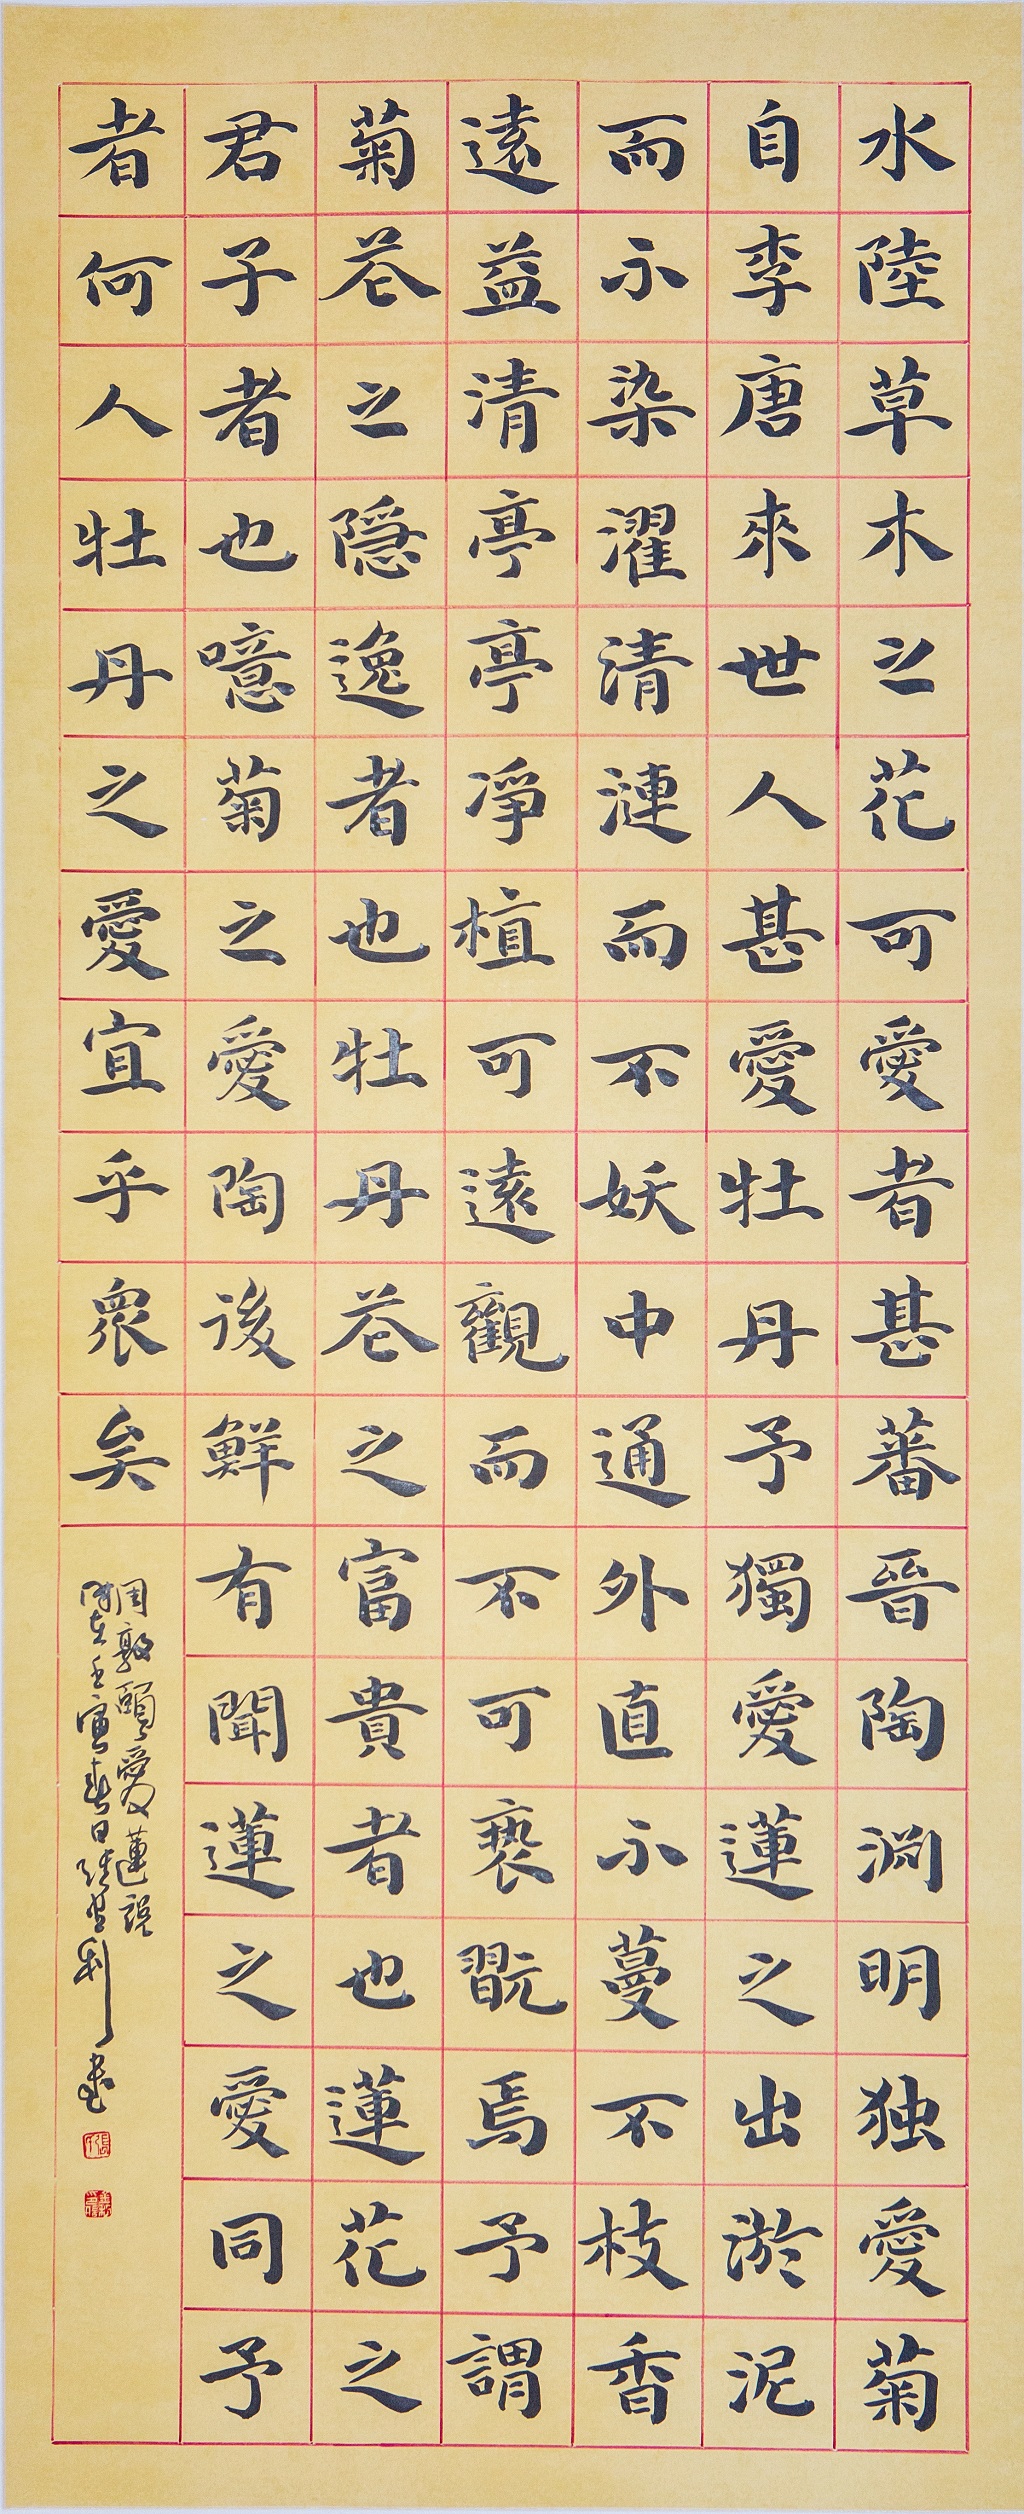 水陸草木之花可愛者甚蕃晉陶渊明独愛菊
自李唐來世人甚愛牡丹予獨愛蓮之出淤泥
而不染濯清漣而不妖中通外直不蔓不枝香
遠益清亭亭凈植可遠觀而不可褻翫焉予謂
菊花之隱逸者也牡丹花之富貴者也蓮花之
君子者也噫菊之愛陶後鮮有聞蓮之愛同予
者何人牡丹之愛宜乎衆矣
周敦頤愛蓮說
壬寅春日
書